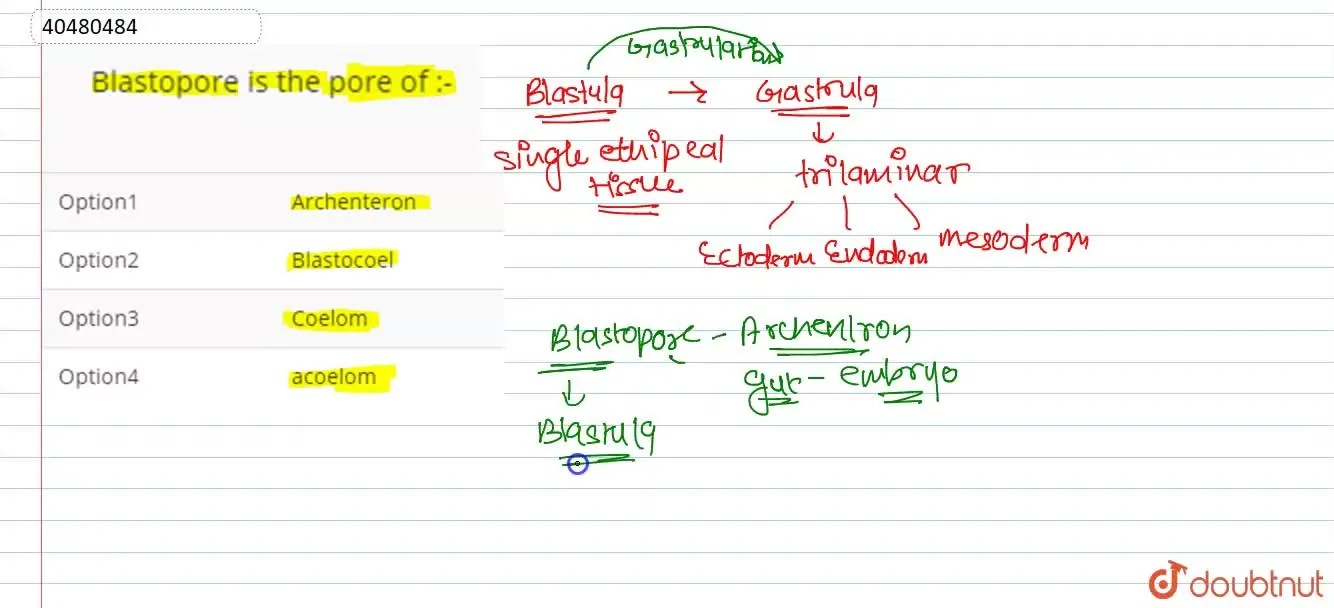 40480484
Blastopore is the pore of :-
Option1 Archenteron
Option2 Blastocoel
Option3 Coelom
Option4 acoelom
Gastrulation
Blastula → Gastrula
single ethipeal
tissue
trilaminar
Ectoderm Endoderm mesoderm
Blastopore - Archentron
gut - embryo
Blastula
doubtnut